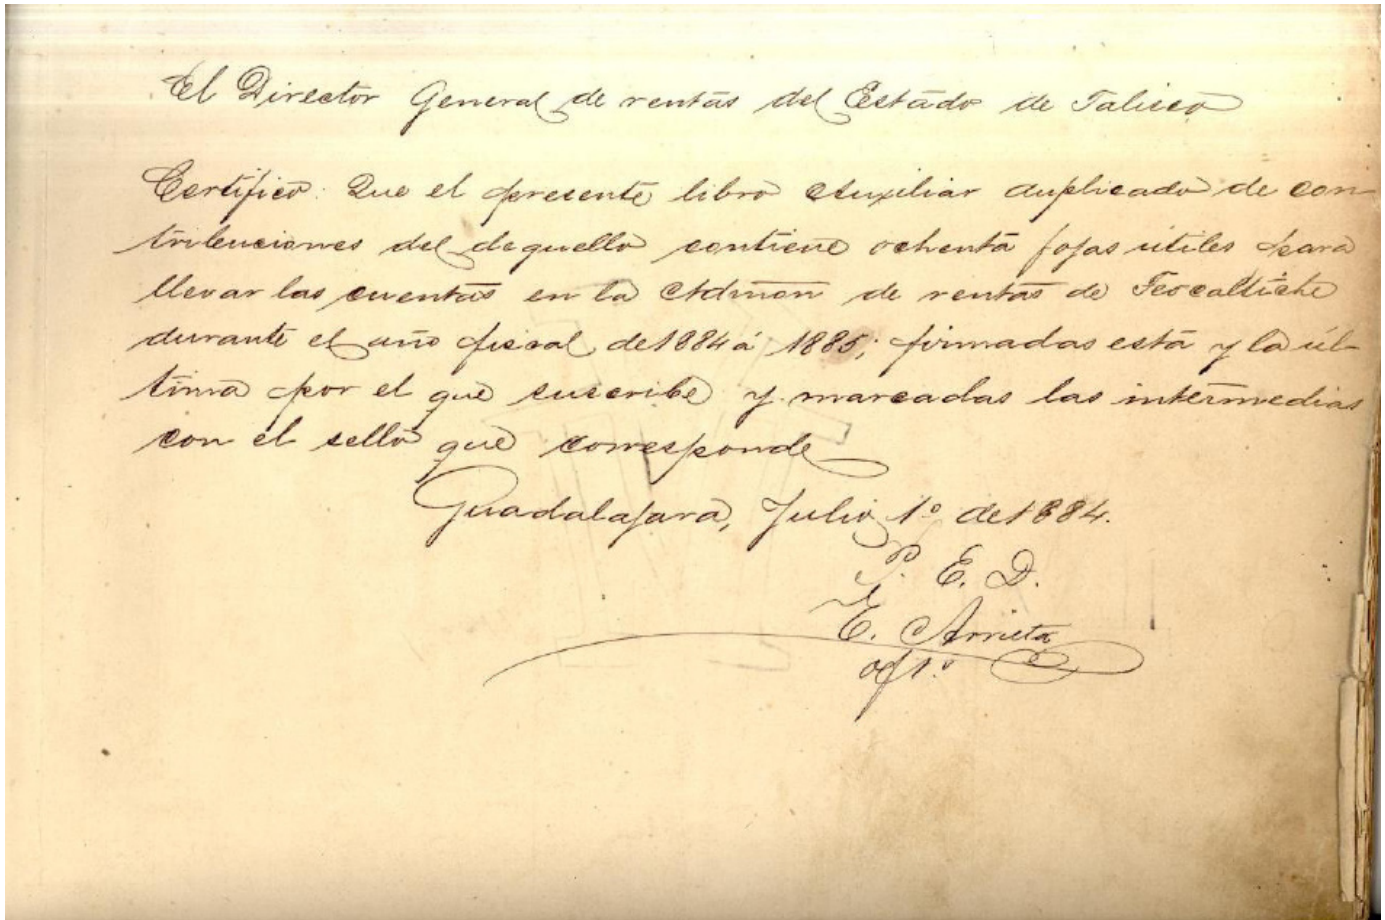 El Director General de rentas del Estado de Jalisco
Certifico: Que el presente libro Auxiliar duplicado de con-
tribuciones del deguello contiene ochenta fojas útiles para
llevar las cuentas en la Admon de rentas de Teocaltiche
durante el año fiscal de 1884 á 1885; firmadas esta y la úl-
tima por el que suscribe y marcadas las intermedias
con el sello que corresponde
Guadalajara, Julio 1º de 1884.
P. E. D.
E. Arrieta
of 1.º